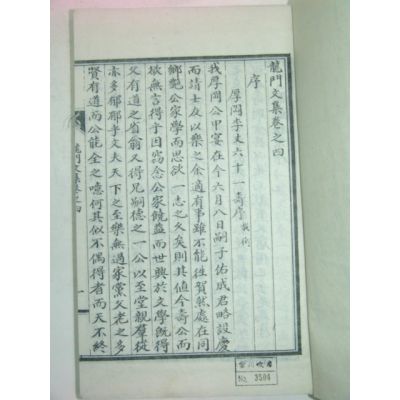 龍門文集卷之四
序
厚岡李丈六十一壽序
我厚岡公甲宴在今六月八日嗣子佑成君略設慶
而請士友以樂之余適有事雖不能往賀然處在同
鄉艷公家學而思欲一志之久矣則其値今壽公而
欲無言得乎因窃念公家饒益而世興於文學旣得
父有道之省翁又得兄德之一公以至堂親羣從
亦多郁郁乎文夫天下之至樂無過家黨父老之多
賢有道而公龍金之噫何其似不偶得者而天不終
龍門文集卷之四
一
No. 3504